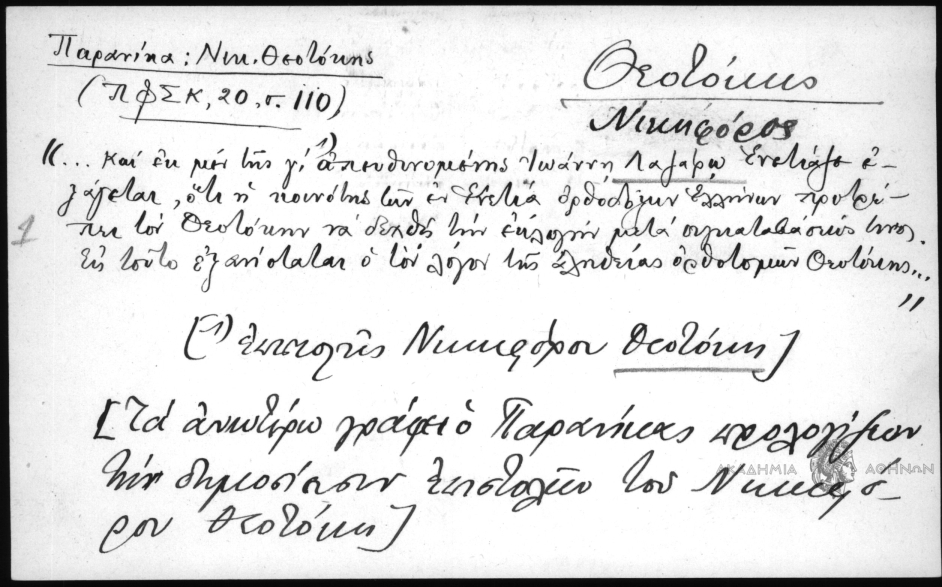 Παρανίκα : Νικ. Θεοτόκης
(ΠΦΣΚ, 20, σ. 110)
Θεοτόκης
Νικηφόρος
"... και εκ μεν της γ', 1) απευθυνομένης Ιωάννη Λαζάρω Ενετίηθε ε-
ξάγεται, ότι η κοινότης των εν Ενετία ορθοδόξων Ελλήνων προτρέ-
πει τον Θεοτόκην να δεχθή την εκλογήν μετά συγκαταβάσεώς τινος.
Εις τούτο εξανίσταται ο τον λόγον της αληθείας ορθοτομών Θεοτόκης...
"
1
[1) επιστολής Νικηφόρου Θεοτόκη]
[Τα ανωτέρω γράφει ο Παρανίκας προλογίζων
την δημοσίευσιν επιστολών του Νικηφό-
ρου Θεοτόκη]
ΑΚΑΔΗΜΙΑ ΑΘΗΝΩΝ